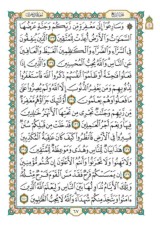 وَسَارِعُوا إِلَىٰ مَغْفِرَةٍ مِّن رَّبِّكُمْ وَجَنَّةٍ عَرْضُهَا
السَّمَٰوَٰتُ وَالْأَرْضُ أُعِدَّتْ لِلْمُتَّقِينَ الَّذِينَ يُنفِقُونَ
فِي السَّرَّاءِ وَالضَّرَّاءِ وَالْكَٰظِمِينَ الْغَيْظَ وَالْعَافِينَ
عَنِ النَّاسِ وَاللَّهُ يُحِبُّ الْمُحْسِنِينَ وَالَّذِينَ إِذَا
فَعَلُوا فَٰحِشَةً أَوْ ظَلَمُوا أَنفُسَهُمْ ذَكَرُوا اللَّهَ فَاسْتَغْفَرُوا
لِذُنُوبِهِمْ وَمَن يَغْفِرُ الذُّنُوبَ إِلَّا اللَّهُ وَلَمْ يُصِرُّوا عَلَىٰ
مَا فَعَلُوا وَهُمْ يَعْلَمُونَ أُولَٰئِكَ جَزَاؤُهُم مَّغْفِرَةٌ
مِّن رَّبِّهِمْ وَجَنَّٰتٌ تَجْرِي مِن تَحْتِهَا الْأَنْهَٰرُ خَٰلِدِينَ
فِيهَا وَنِعْمَ أَجْرُ الْعَٰمِلِينَ قَدْ خَلَتْ مِن قَبْلِكُمْ سُنَنٌ
فَسِيرُوا فِي الْأَرْضِ فَانظُرُوا كَيْفَ كَانَ عَٰقِبَةُ الْمُكَذِّبِينَ
هَٰذَا بَيَانٌ لِّلنَّاسِ وَهُدًى وَمَوْعِظَةٌ لِّلْمُتَّقِينَ
وَلَا تَهِنُوا وَلَا تَحْزَنُوا وَأَنتُمُ الْأَعْلَوْنَ إِن كُنتُم مُّؤْمِنِينَ
إِن يَمْسَسْكُمْ قَرْحٌ فَقَدْ مَسَّ الْقَوْمَ قَرْحٌ مِّثْلُهُ
وَتِلْكَ الْأَيَّامُ نُدَاوِلُهَا بَيْنَ النَّاسِ وَلِيَعْلَمَ اللَّهُ الَّذِينَ
ءَامَنُوا وَيَتَّخِذَ مِنكُمْ شُهَدَاءَ وَاللَّهُ لَا يُحِبُّ الظَّٰلِمِينَ
٦٧